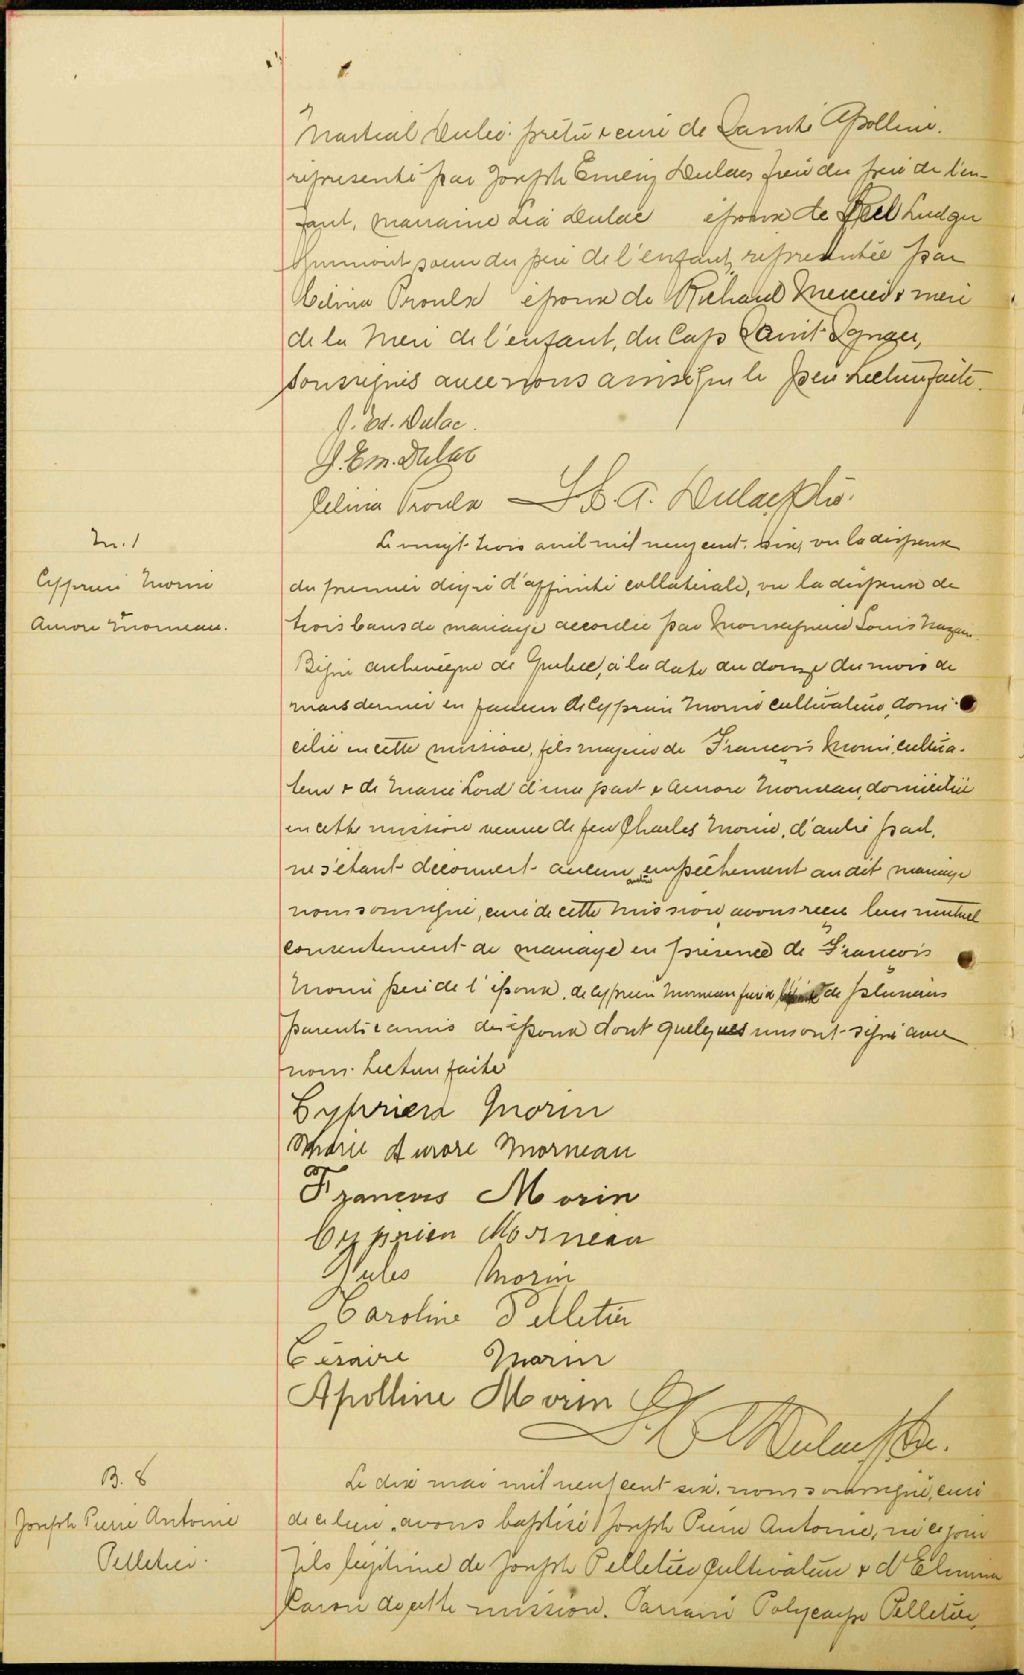 Martial Dulac prêtre & curé de Sainte Apolline.
représenté par Joseph Emery Dulac frère du père de l'en-
fant, marraine Léa Dulac épouse de Ludger
soeur du père de l'enfant, représentée par
Célina Proulx épouse de Richard Mercier & mère
de la mère de l'enfant, du Cap Saint Ignace,
soussignés avec nous ainsi que le père. Lecture faite.
J. Ed. Dulac.
J. Em. Dulac
Célina Proulx L. E. A. Dulac, Ptre.
M. 1
Cyprien Morin
&
Aurore Morneau.
Le vingt-trois avril mil neuf cent six, vu la dispense
du premier degré d'affinité collatérale, vu la dispense de
trois bans de mariage accordée par Monseigneur Louis Nazaire
Bégin archevêque de Québec, à la date du douze du mois de
mars dernier en faveur de Cyprien Morin cultivateur, domi-
cilié en cette mission, fils majeur de François Morin, cultiva-
teur & de Marie Lord d'une part & Aurore Morneau, domiciliée
en cette mission veuve de feu Charles Morin, d'autre part,
ne s'étant découvert aucun autre empêchement au dit mariage
nous soussigné, curé de cette mission, avons reçu leur mutuel
consentement de mariage en présence de François
Morin père de l'époux, de Cyprien Morneau & de plusieurs
parents & amis des époux dont quelques uns ont signé avec
nous. Lecture faite
Cyprien Morin
Marie Aurore Morneau
François Morin
Cyprien Morneau
Jules Morin
Caroline Pelletier
Césaire Morin
Apolline Morin
L. E. A. Dulac, Ptre.
B. 8
Joseph Pierre Antoine
Pelletier.
Le dix mai mil neuf cent six, nous soussigné, curé
de ce lieu, avons baptisé Joseph Pierre Antoine, né ce jour
fils légitime de Joseph Pelletier cultivateur & d'Elmina
Caron de cette mission. Parrain Polycarpe Pelletier,